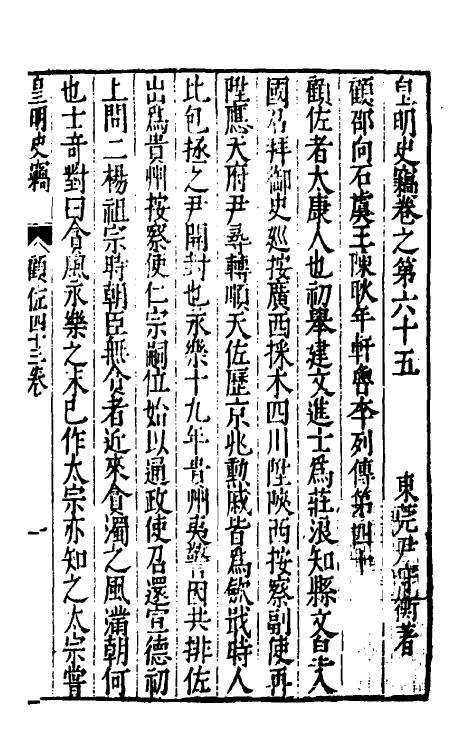 皇明史竊卷之第六十五　東莞尹守衡著
顧邵向石虞王陳耿年軒魯李列傳第四十
顧佐者太康人也初舉建文進士爲莊浪知縣文皇入
國召拜御史巡按廣西採木四川陞陝西按察副使再
陞應天府尹尋轉順天佐歷京兆勳戚皆爲歛戢時人
比包拯之尹開封也永樂十九年貴州夷警因共排佐
出爲貴州按察使仁宗嗣位始以通政使召還宣德初
上問二楊祖宗時朝臣無貪者近來貪濁之風滿朝何
也士奇對曰貪風永樂之末已作太宗亦知之太宗嘗
皇明史竊　顧佐四十三卷　一